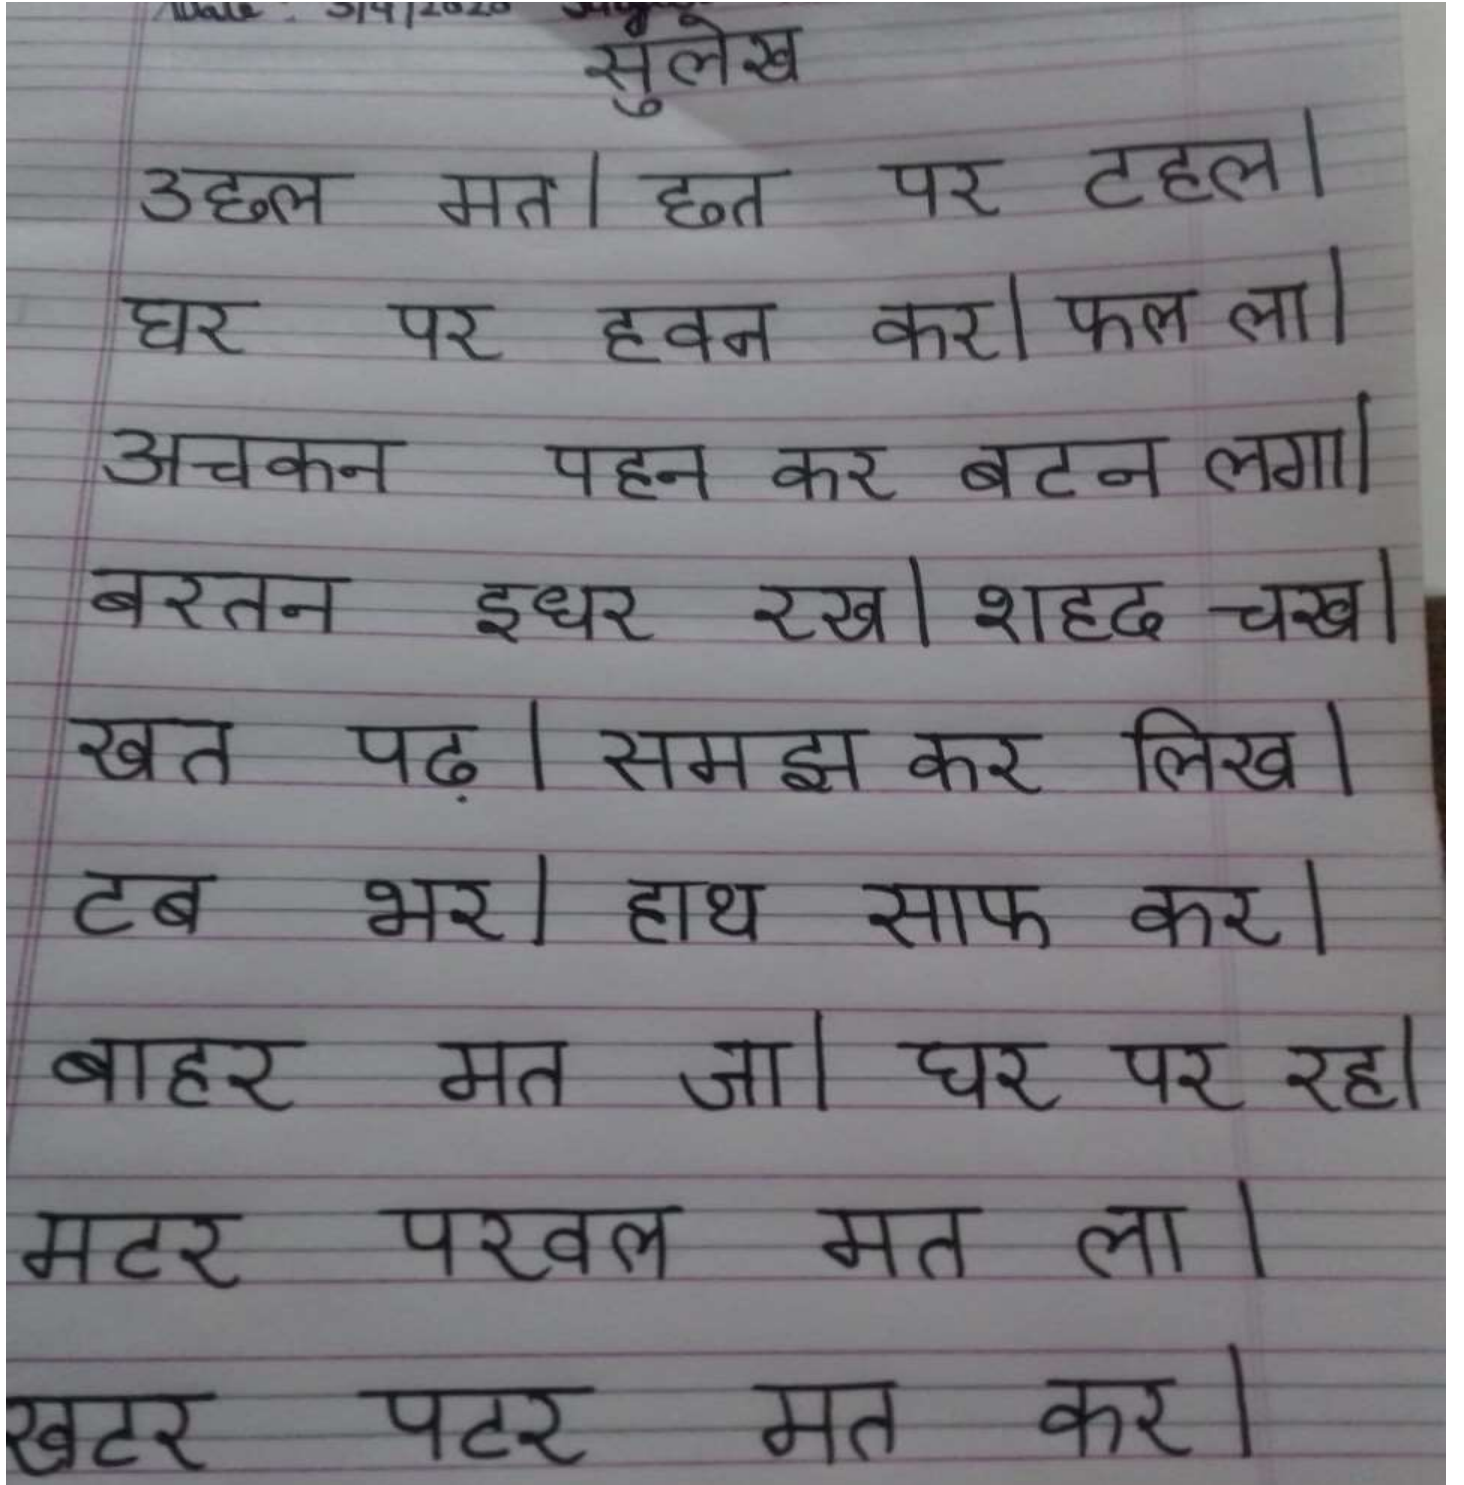 Date : 3/4/2020
सुलेख
उछल मत। छत पर टहल।
घर पर हवन कर। फल ला।
अचकन पहन कर बटन लगा।
बरतन इधर रख। शहद चख।
खत पढ़। समझ कर लिख।
टब भर। हाथ साफ कर।
बाहर मत जा। घर पर रह।
मटर परवल मत ला।
खटर पटर मत कर।